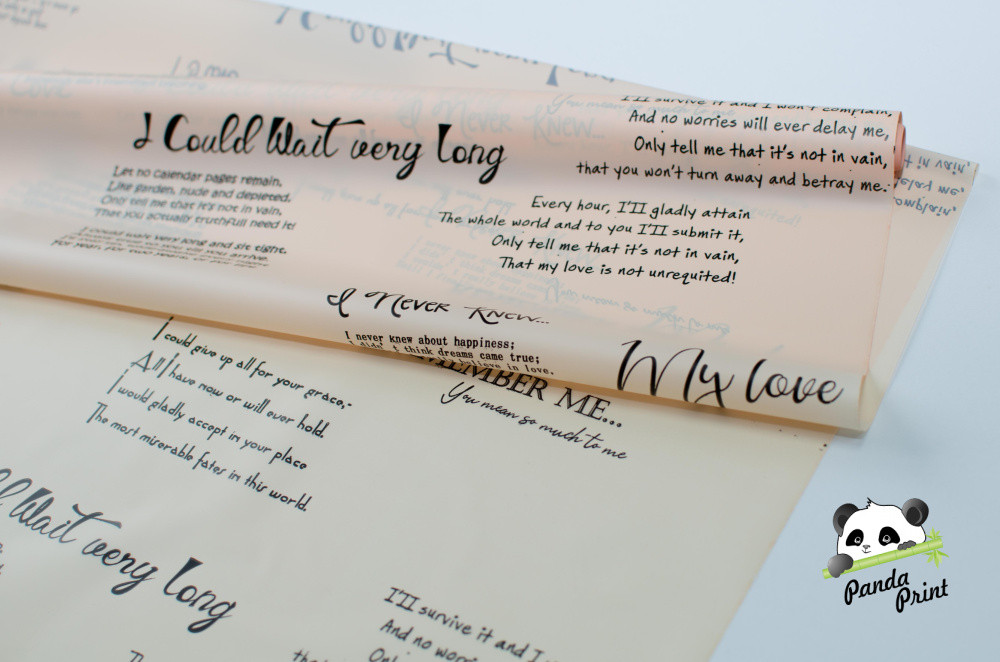 I Could Wait very Long
Let no calendar pages remain,
Like garden, nude and depleted,
Only tell me that it's not in vain,
That you actually truthfull need it!
I could wait very long and sit tight,
I'll survive it and I won't complain,
And no worries will ever delay me,
Only tell me that it's not in vain,
that you won't turn away and betray me.
Every hour, I'll gladly attain
The whole world and to you I'll submit it,
Only tell me that it's not in vain,
That my love is not unrequited!
I Never Knew...
I never knew about happiness;
I didn't think dreams came true;
believe in love.
My love
MEMBER ME...
You mean so much to me
I could give up all for your grace,-
All I have now or will ever hold.
I would gladly accept in your place
The most miserable fates in this world.
Wait very long
I'll survive it and I
And no worri
Only
Panda
Print